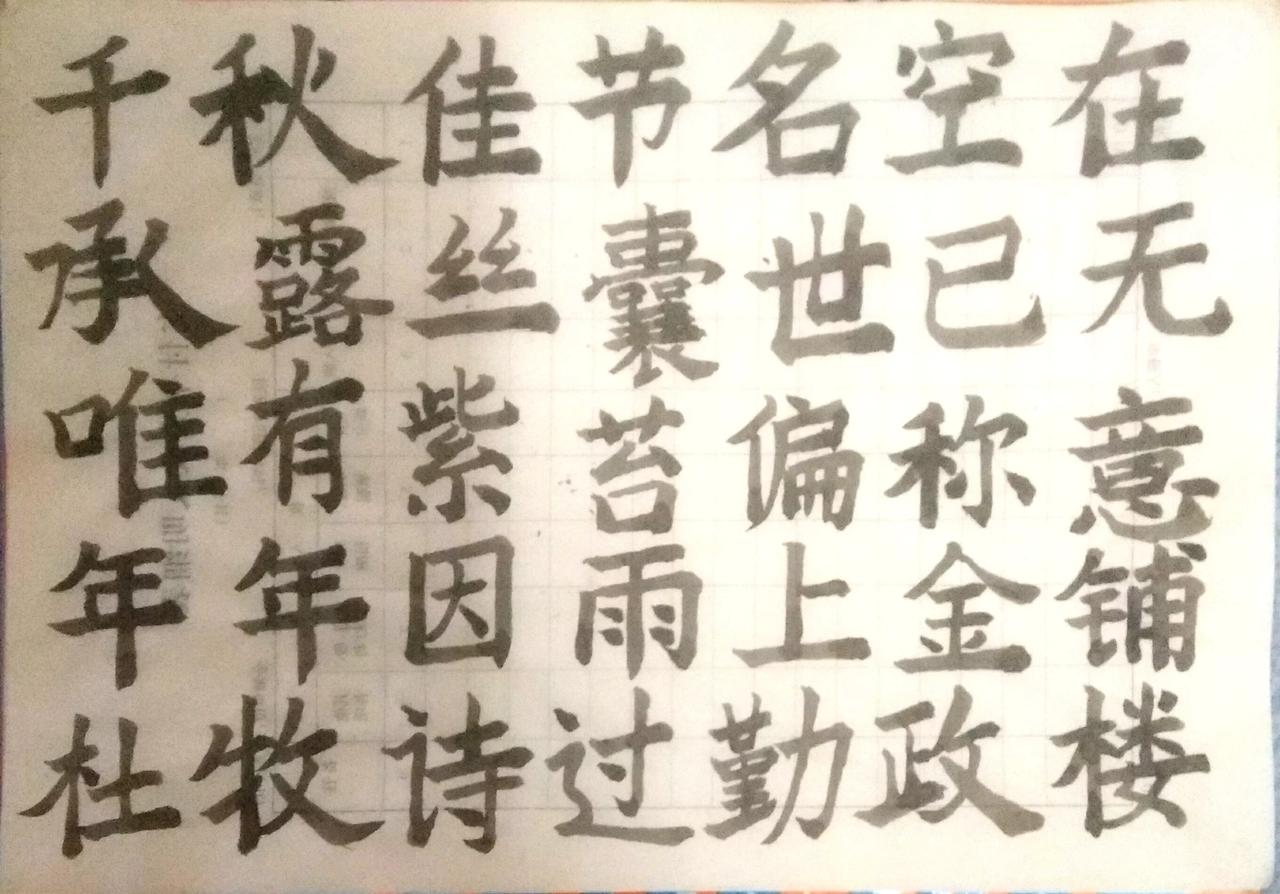 千秋佳节名空在
承露丝囊世已无
唯有紫苔偏称意
年年因雨上金铺
杜牧诗过勤政楼